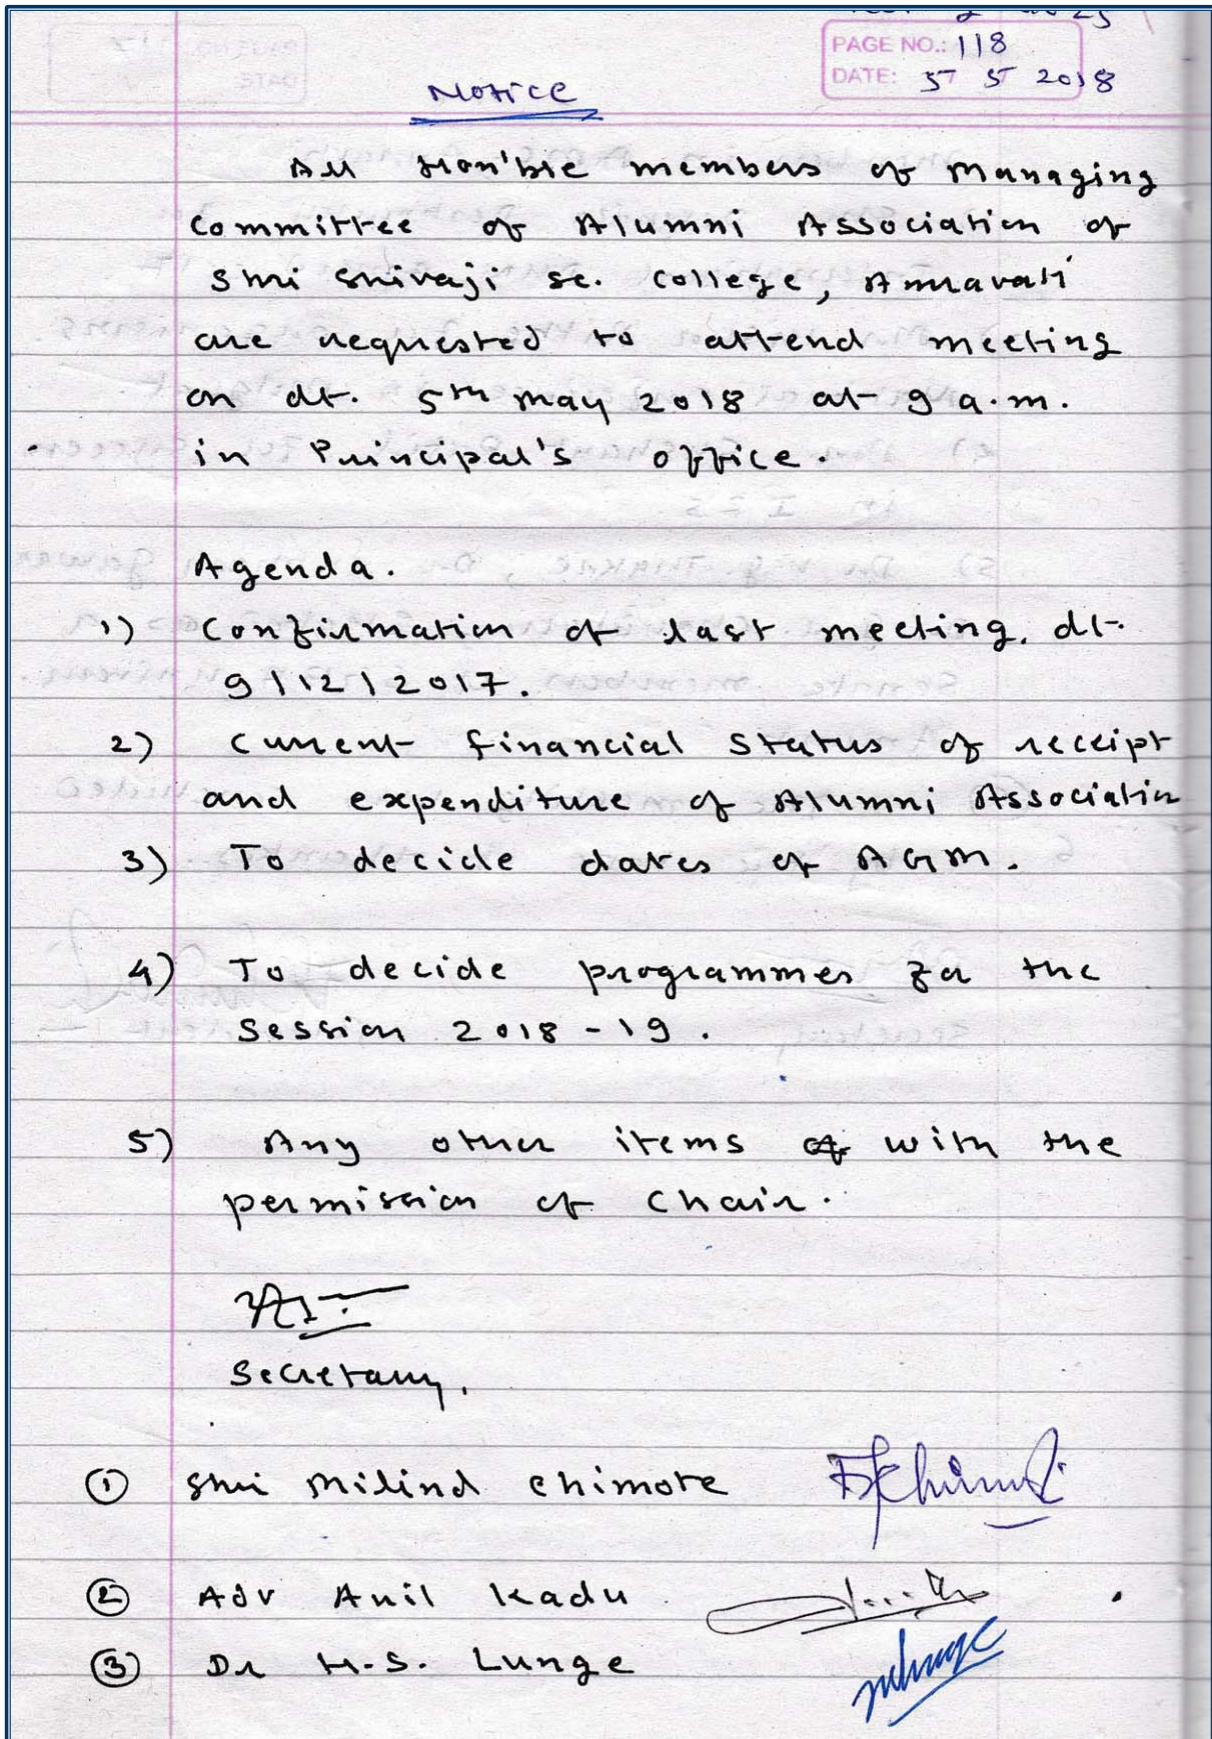 PAGE NO.: 118
DATE: 5 5 2018
Notice
All Hon'ble members of Managing
Committee of Alumni Association of
Shri Shivaji Sc. College, Amravati
are requested to attend meeting
on dt. 5th May 2018 at 9 a.m.
in Principal's office.
Agenda.
1) Confirmation of last meeting, dt.
9|12|2017.
2) Current financial status of receipt
and expenditure of Alumni Association
3) To decide dates of AGM.
4) To decide programmes for the
session 2018-19.
5) Any other items of with the
permission of Chair.
Secretary.
① Shri Milind Chimote
② Adv Anil Kadu
③ Dr H.S. Lunge